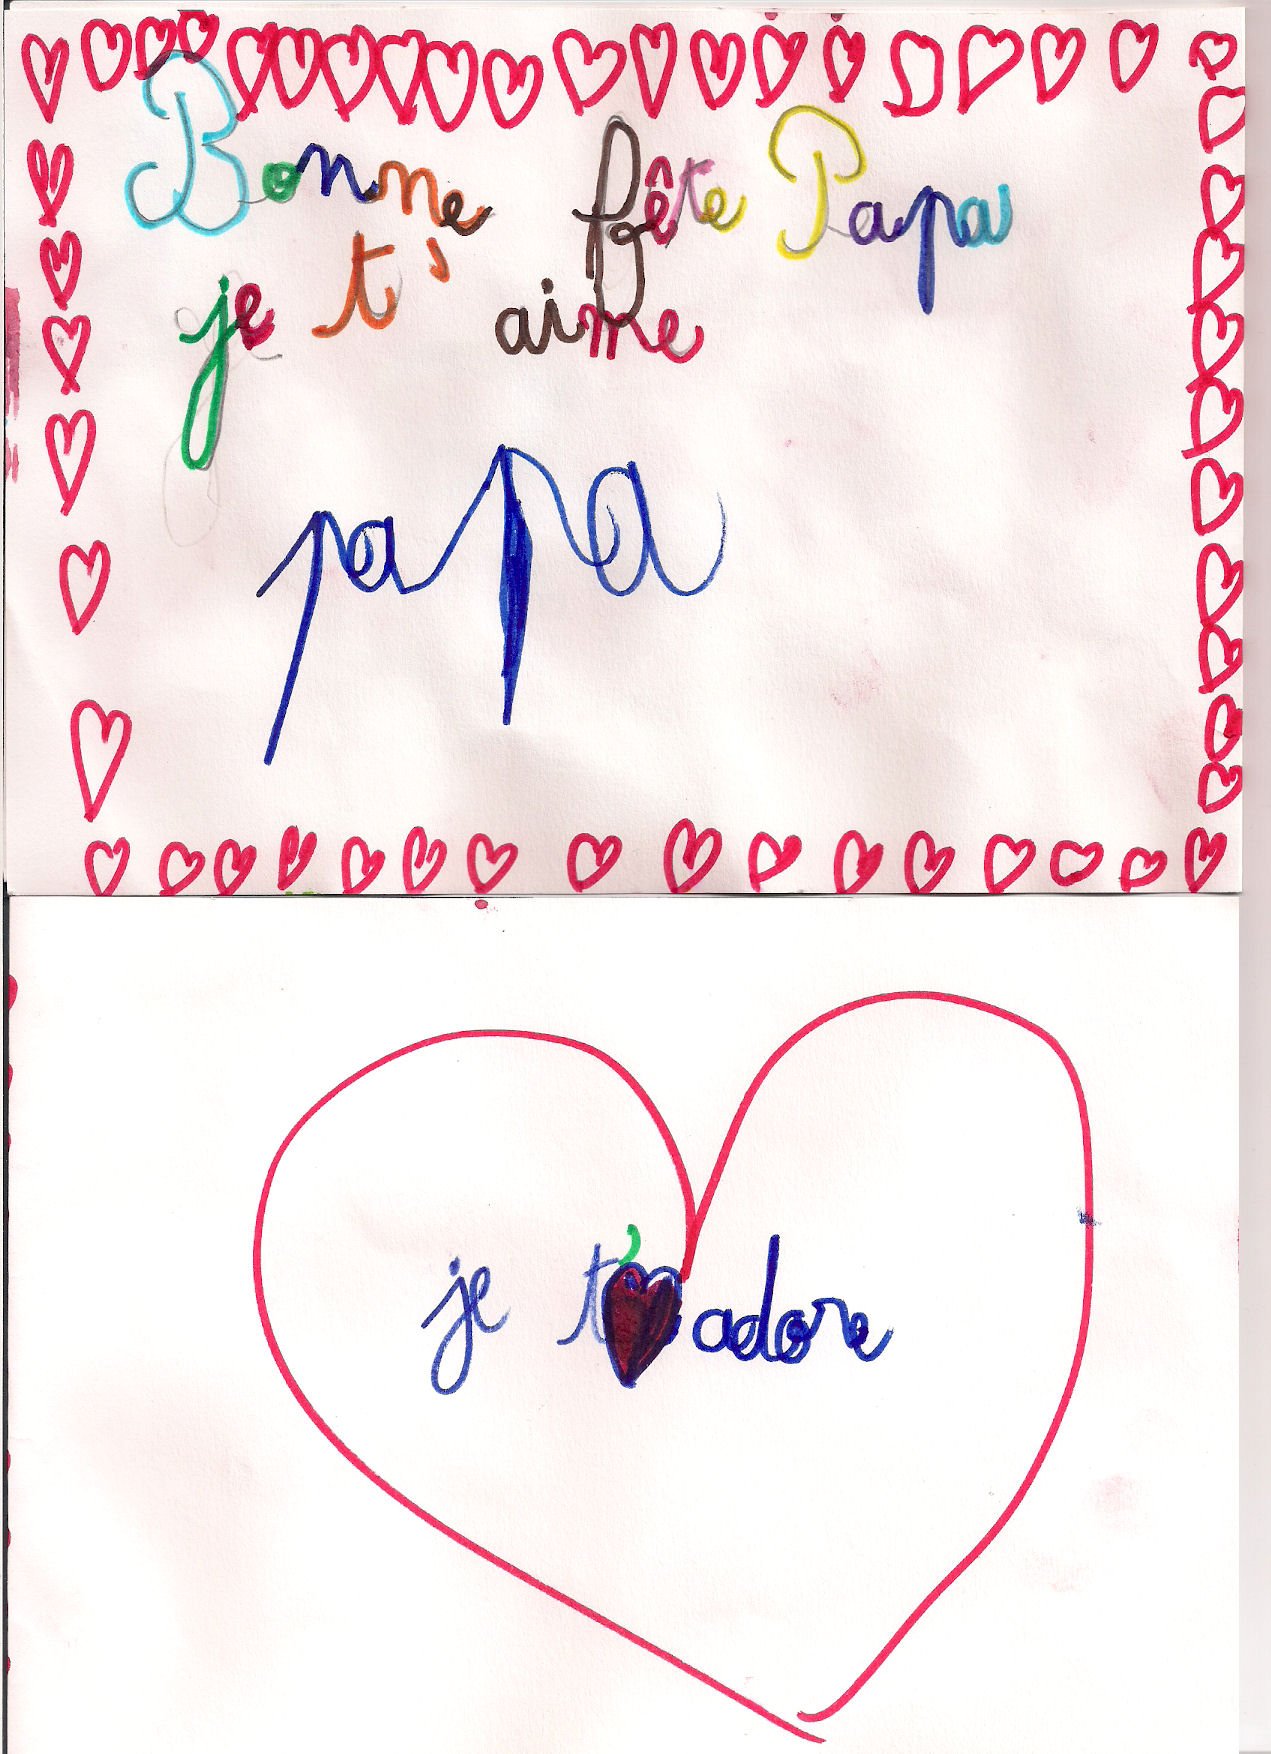 Bonne fête Papa
je t'aime
papa
je t'adore